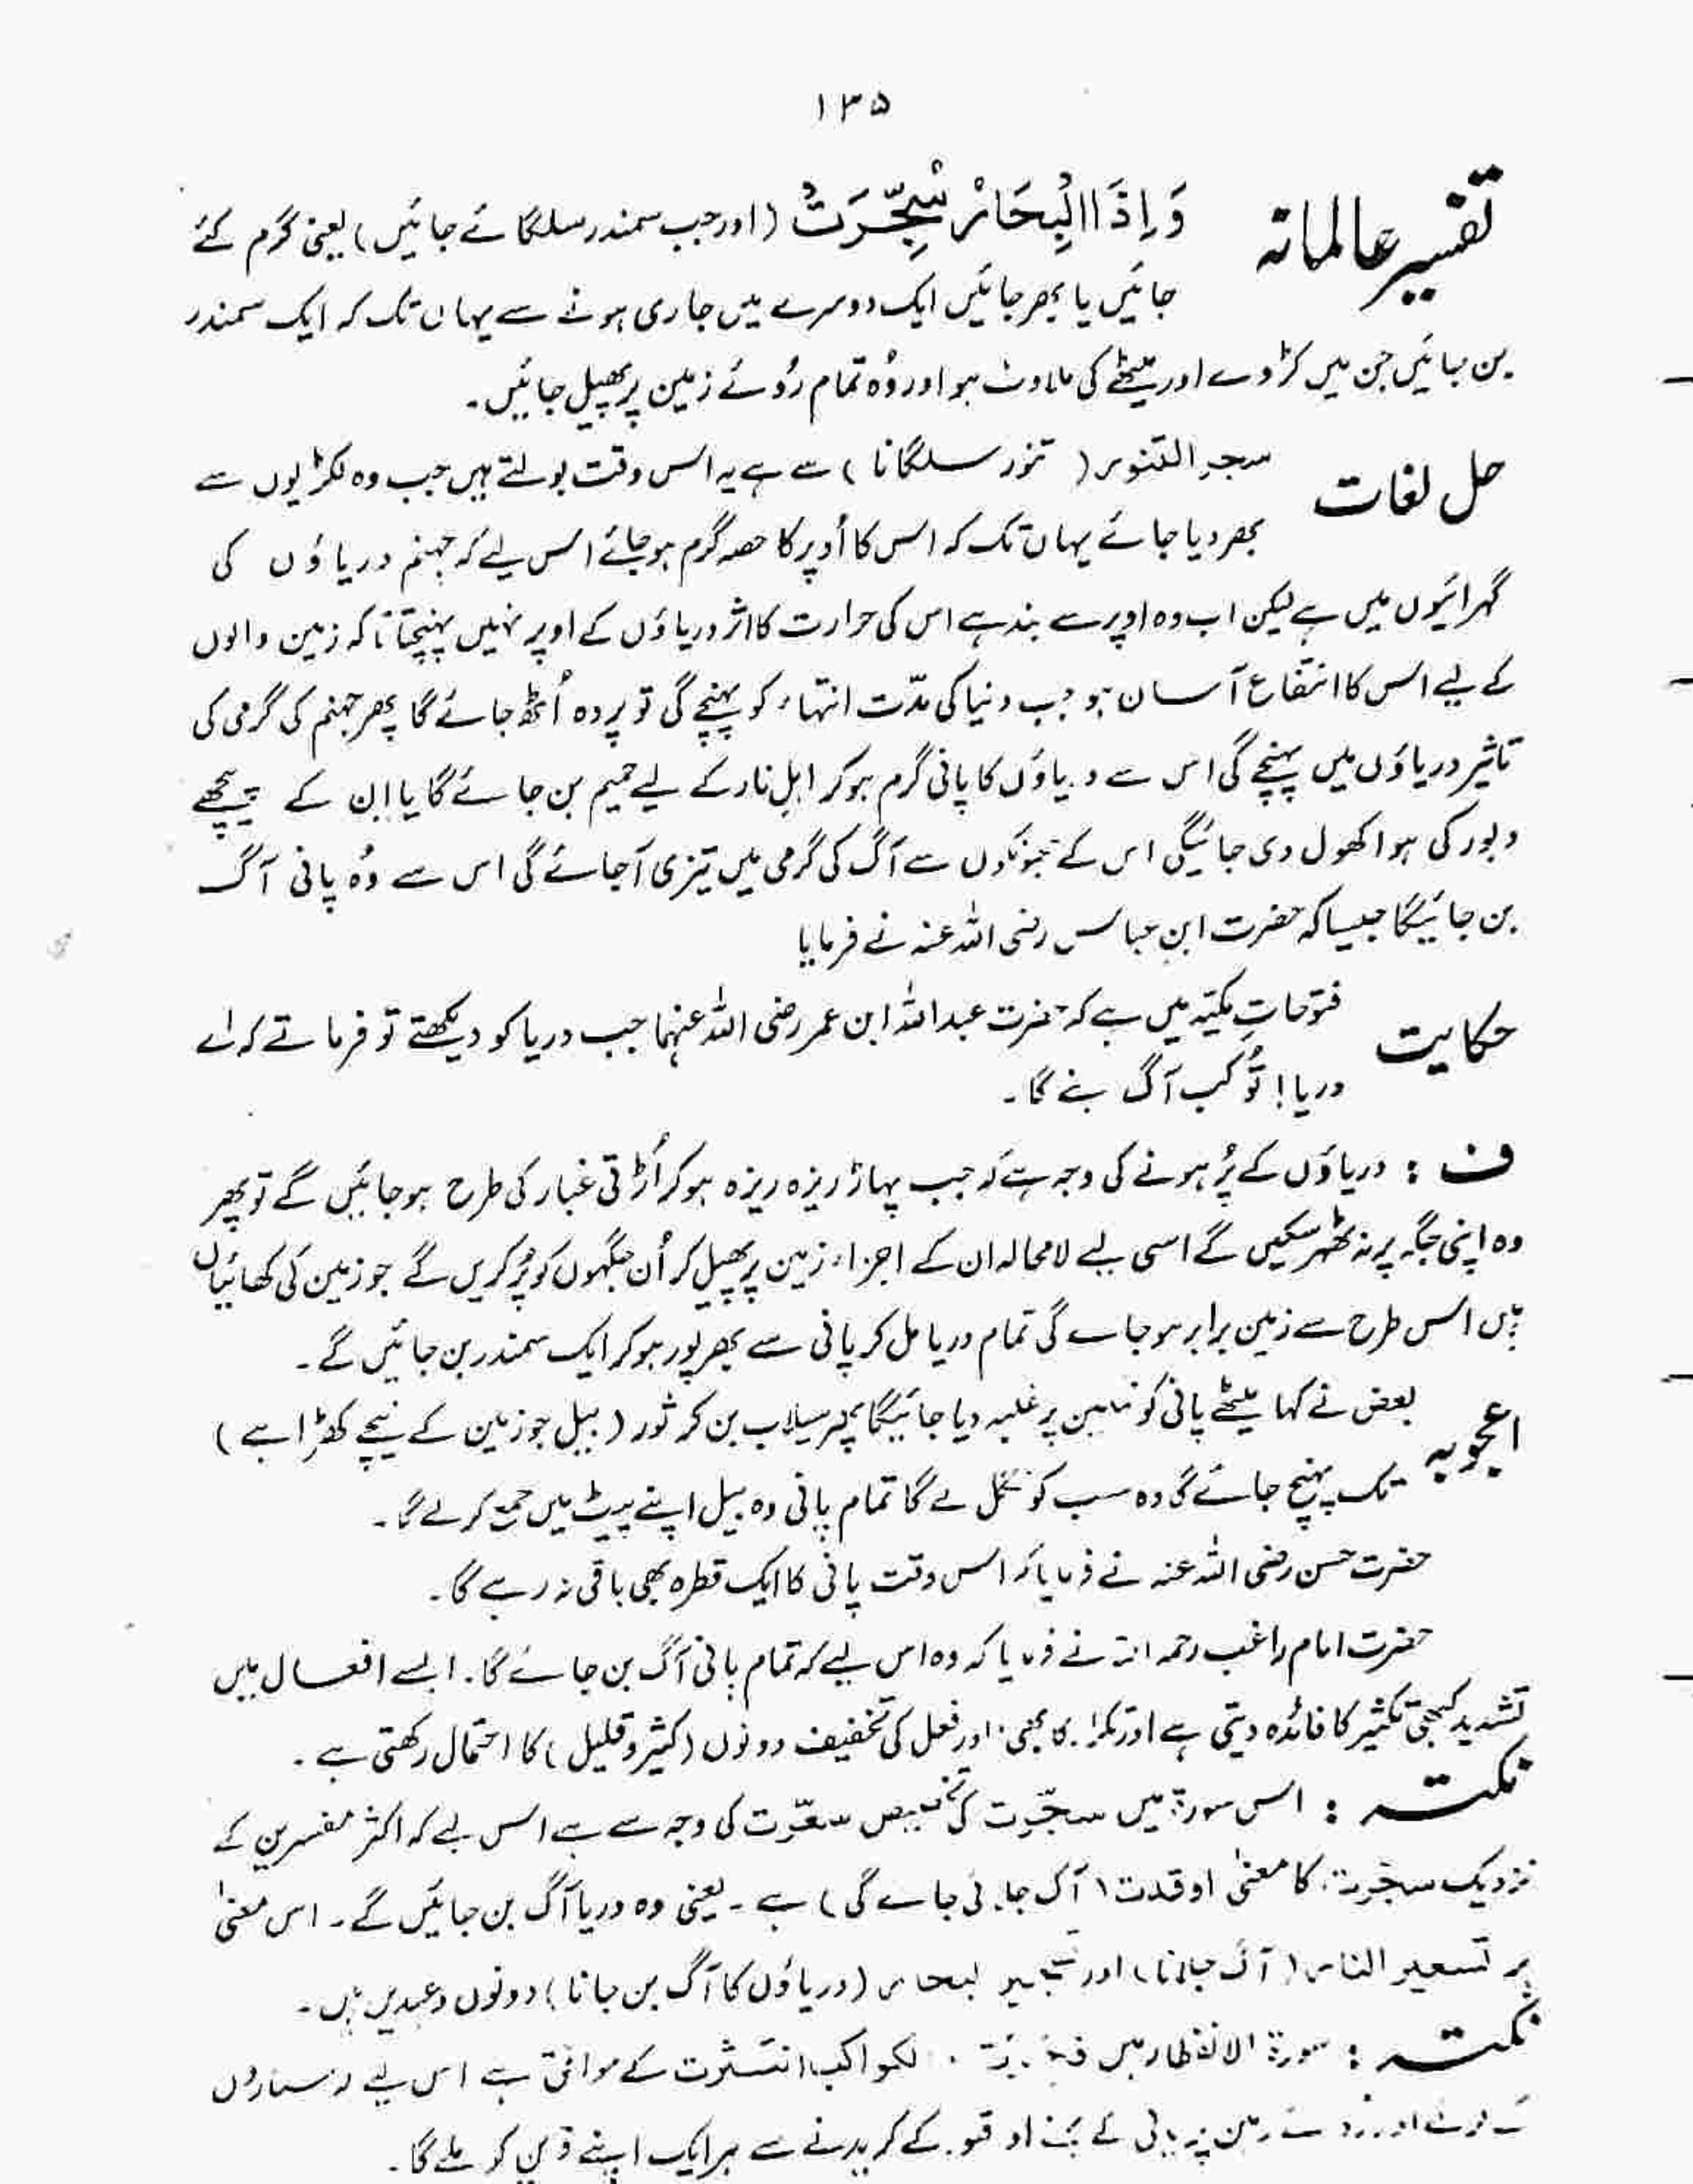 ۱۳۵
تفسیر عالمانہ وَإِذَا الْبِحَارُ سُجِّرَتْ (اور جب سمندر سلگائے جائیں) یعنی گرم کئے
جائیں یا بھر جائیں ایک دوسرے میں جاری ہونے سے یہاں تک کہ ایک سمندر
بن جائیں جن میں کڑوے اور میٹھے کی ملاوٹ ہو اور وُہ تمام رُوئے زمین پر پھیل جائیں۔
حل لغات سجر التنور (تنور سلگانا) سے ہے یہ اس وقت بولتے ہیں جب وہ لکڑیوں سے
بھر دیا جائے یہاں تک کہ اس کا اُوپر کا حصہ گرم ہو جائے اس لیے کہ جہنم دریاؤں کی
گہرائیوں میں ہے لیکن اب وہ اوپر سے بند ہے اس کی حرارت کا اثر دریاؤں کے اوپر نہیں پہنچتا تاکہ زمین والوں
کے لیے اس کا انتفاع آسان ہو جب دنیا کی مدّت انتہاء کو پہنچے گی تو پردہ اُٹھ جائے گا پھر جہنم کی گرمی کی
تاثیر دریاؤں میں پہنچے گی اس سے دریاؤں کا پانی گرم ہو کر اہل نار کے لیے حمیم بن جائے گا یا ان کے پیچھے
دبور کی ہوا کھول دی جائیگی اس کے جھونکوں سے آگ کی گرمی میں تیزی آجائے گی اس سے وُہ پانی آگ
بن جائیگا جیسا کہ حضرت ابن عباس رضی اللہ عنہ نے فرمایا
حکایت فتوحاتِ مکیّہ میں ہے کہ حضرت عبداللہ ابن عمر رضی اللہ عنہما جب دریا کو دیکھتے تو فرماتے کہ اے
دریا! تُو کب آگ بنے گا۔
ف : دریاؤں کے پُر ہونے کی وجہ ہے کہ جب پہاڑ ریزہ ریزہ ہو کر اُڑتی غبار کی طرح ہو جائیں گے تو پھر
وہ اپنی جگہ پر نہ ٹھہر سکیں گے اسی لیے لامحالہ ان کے اجزاء زمین پر پھیل کر اُن جگہوں کو پُر کریں گے جو زمین کی کھائیاں
ہیں اس طرح سے زمین برابر ہو جائے گی تمام دریا مل کر پانی سے بھرپور ہو کر ایک سمندر بن جائیں گے۔
اعجوبہ بعض نے کہا میٹھے پانی کو نمکین پر غلبہ دیا جائیگا پھر سیلاب بن کر ثور (بیل جو زمین کے نیچے کھڑا ہے)
تک پہنچ جائے گا وہ سب کو نگل لے گا تمام پانی وہ بیل اپنے پیٹ میں جمع کر لے گا۔
حضرت حسن رضی اللہ عنہ نے فرمایا کہ اس وقت پانی کا ایک قطرہ بھی باقی نہ رہے گا۔
حضرت امام راغب رحمہ اللہ نے فرمایا کہ وہ اس لیے کہ تمام پانی آگ بن جائے گا۔ ایسے افعال میں
تشدید کبھی تکثیر کا فائدہ دیتی ہے اور تکرار کا بھی اور فعل کی تخفیف دونوں (کثیر و قلیل) کا احتمال رکھتی ہے۔
نکتہ : اس سورۃ میں سجّرت کی تخصیص سعّرت کی وجہ سے ہے اس لیے کہ اکثر مفسرین کے
نزدیک سجّرت کا معنیٰ اوقدت (آگ جلائی جائے گی) ہے۔ یعنی وہ دریا آگ بن جائیں گے۔ اس معنیٰ
پر تسعیر النار (آگ جلانا) اور تسجیر البحار (دریاؤں کا آگ بن جانا) دونوں وعیدیں ہیں۔
نکتہ : سورۃ الانفطار میں فجرت الکواکب انتثرت کے موافق ہے اس لیے کہ ستاروں
کے اور زمین پر پانی کے کے کریدنے سے ہر ایک اپنے کو ملے گا۔